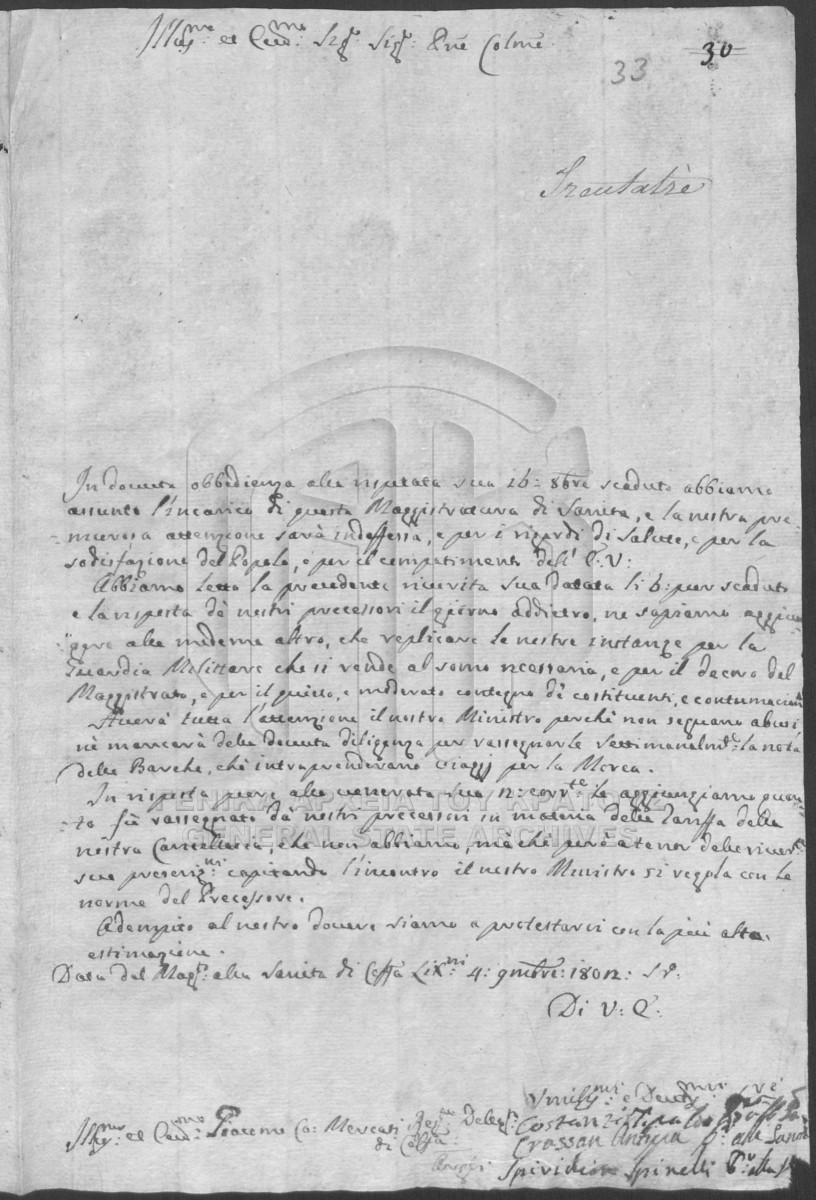 Illus:mo ed Ecc:mo Sig:r Sig:r Pne Colmo
30
33
Trentatrè
In dovuta obbedienza alla rispettata sua 26: 8bre scaduto abbiamo
assunto l'incarico di questa Maggistratura di Sanità, e la nostra pre
murosa attenzione sarà indeffessa, e per i rigardi di Salute, e per la
sodisfazione del Popolo, e per il compatimento dell' E: V:
Abbiamo letto la precedente riverita sua datata li 6: pur scaduto
e la risposta dà nostri precessori il giorno addietro, ne sapiamo aggiun
gere alle medeme altro, che replicare le nostre instanze per la
Guardia Melittare che si rende al somo necessaria, e per il decoro del
Maggistrato, e per il quieto, e moderato contegno dè costituenti, e contumacianti
Averà tutta l'attenzione il nostro Ministro perchè non seguano abusi
nè mancarà della dovuta diligenza per rassegnarle settimanalmte: la nota
delle Barche, che intraprenderano viaggj per la Morea.
In risposta pure alla venerata sua 12: corrte le aggiungiamo quan
to fù rassegnato dà nostri precessori in materia della Tariffa della
nostra Cancellaria, che non abbiamo, mà che però a tenor delle riverite
sue prescrizni: capitando l'incontro il nostro Ministro si regola con le
norme del Precessore.
Adempito al nostro dovere siamo a protestarci con la più alta
estimazione.
Data dal Magto: alla Sanità di Ceffa Lixni: 4: 9mbre: 1802: S.V.
Di V: E:
Umilmi: e Devmi: srvi
ΓΕΝΙΚΑ ΑΡΧΕΙΑ ΤΟΥ ΚΡΑΤΟΥΣ
GENERAL STATE ARCHIVES
Illmo: ed Ecc:mo Giacomo Co: Mercati Delegto:
di Ceffa
Spiridion Spinelli Pr: alla